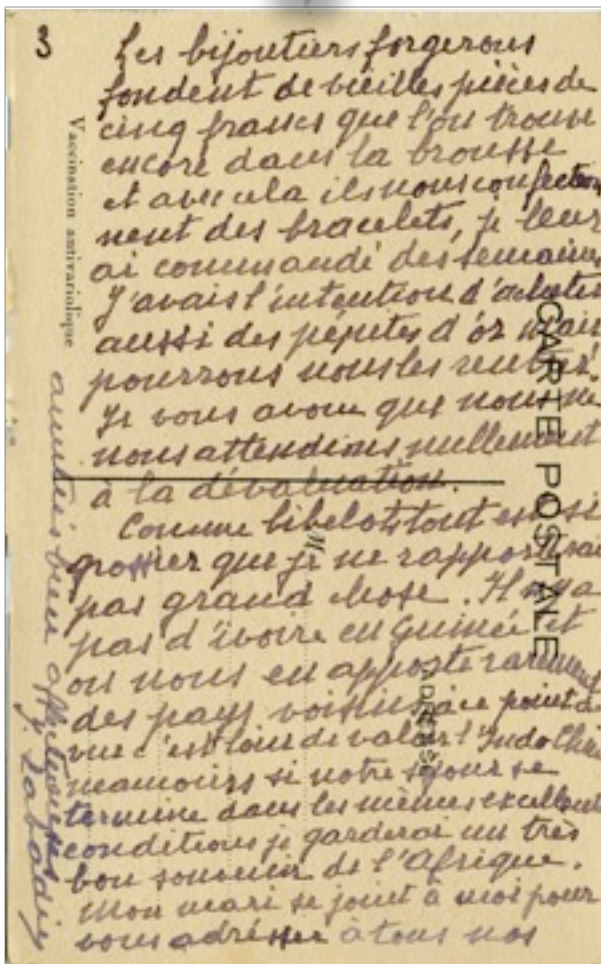 3
Les bijoutiers forgerons
fondent de vieilles pièces de
cinq francs que l'on trouve
encore dans la brousse
et avec cela ils nous confection
nent des bracelets, je leur
ai commandé des semaines
J'avais l'intention d'acheter
aussi des pépites d'or mais
pourrons nous les
Je vous avoue que nous ne
nous attendions nullement
à la dévaluation.
Comme bibelots tout est si
grossier que je ne rapporterai
pas grand chose. Il n'y a
pas d'ivoire en Guinée et
on nous en apporte rarement
des pays voisins, à ce point de
vue c'est loin de valoir l'Indo Chine
néamoins si notre séjour se
termine dans les mêmes excellentes
conditions je garderai un très
bon souvenir de l'Afrique.
Mon mari se joint à moi pour
vous adresser à tous nos
amitiés bien affectueuses
Labadie
Vaccination antivariolique
CARTE POSTALE
M
ADRESSE